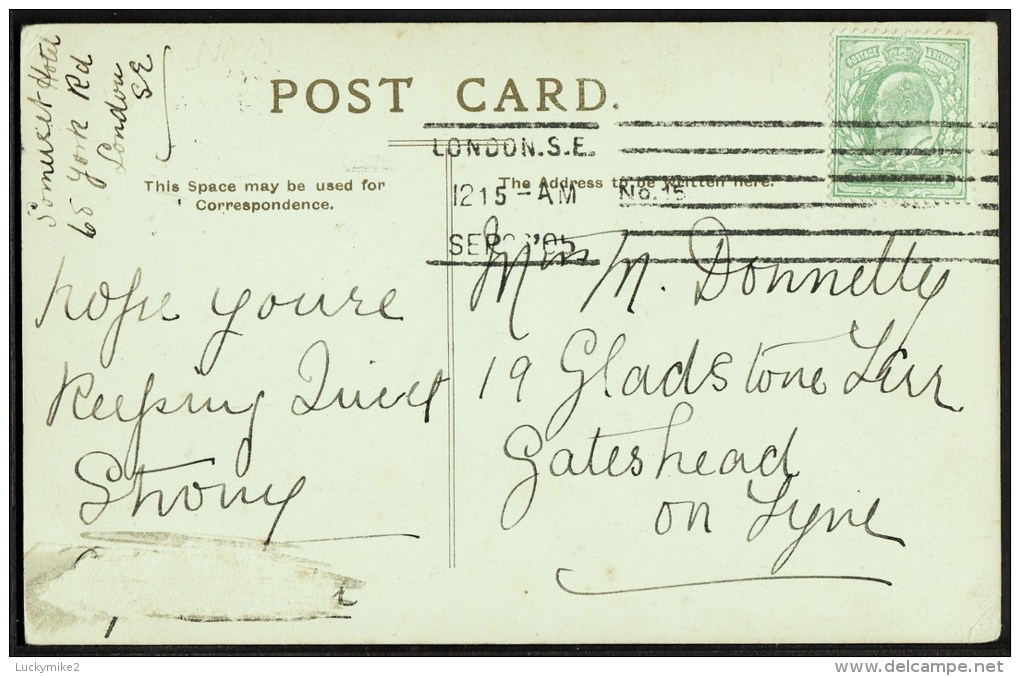 Somerset Hotel
65 York Rd
London
SE
POST CARD.
This Space may be used for
Correspondence.
The Address to be written here.
POSTAGE & REVENUE
LONDON.S.E.
12 15 - AM No. 15
SEP '05
Hope youre
Keeping Quiet
Strong
Miss M. Donnelly
19 Gladstone Terr
Gateshead
on Tyne
Luckymike2
www.delcampe.net